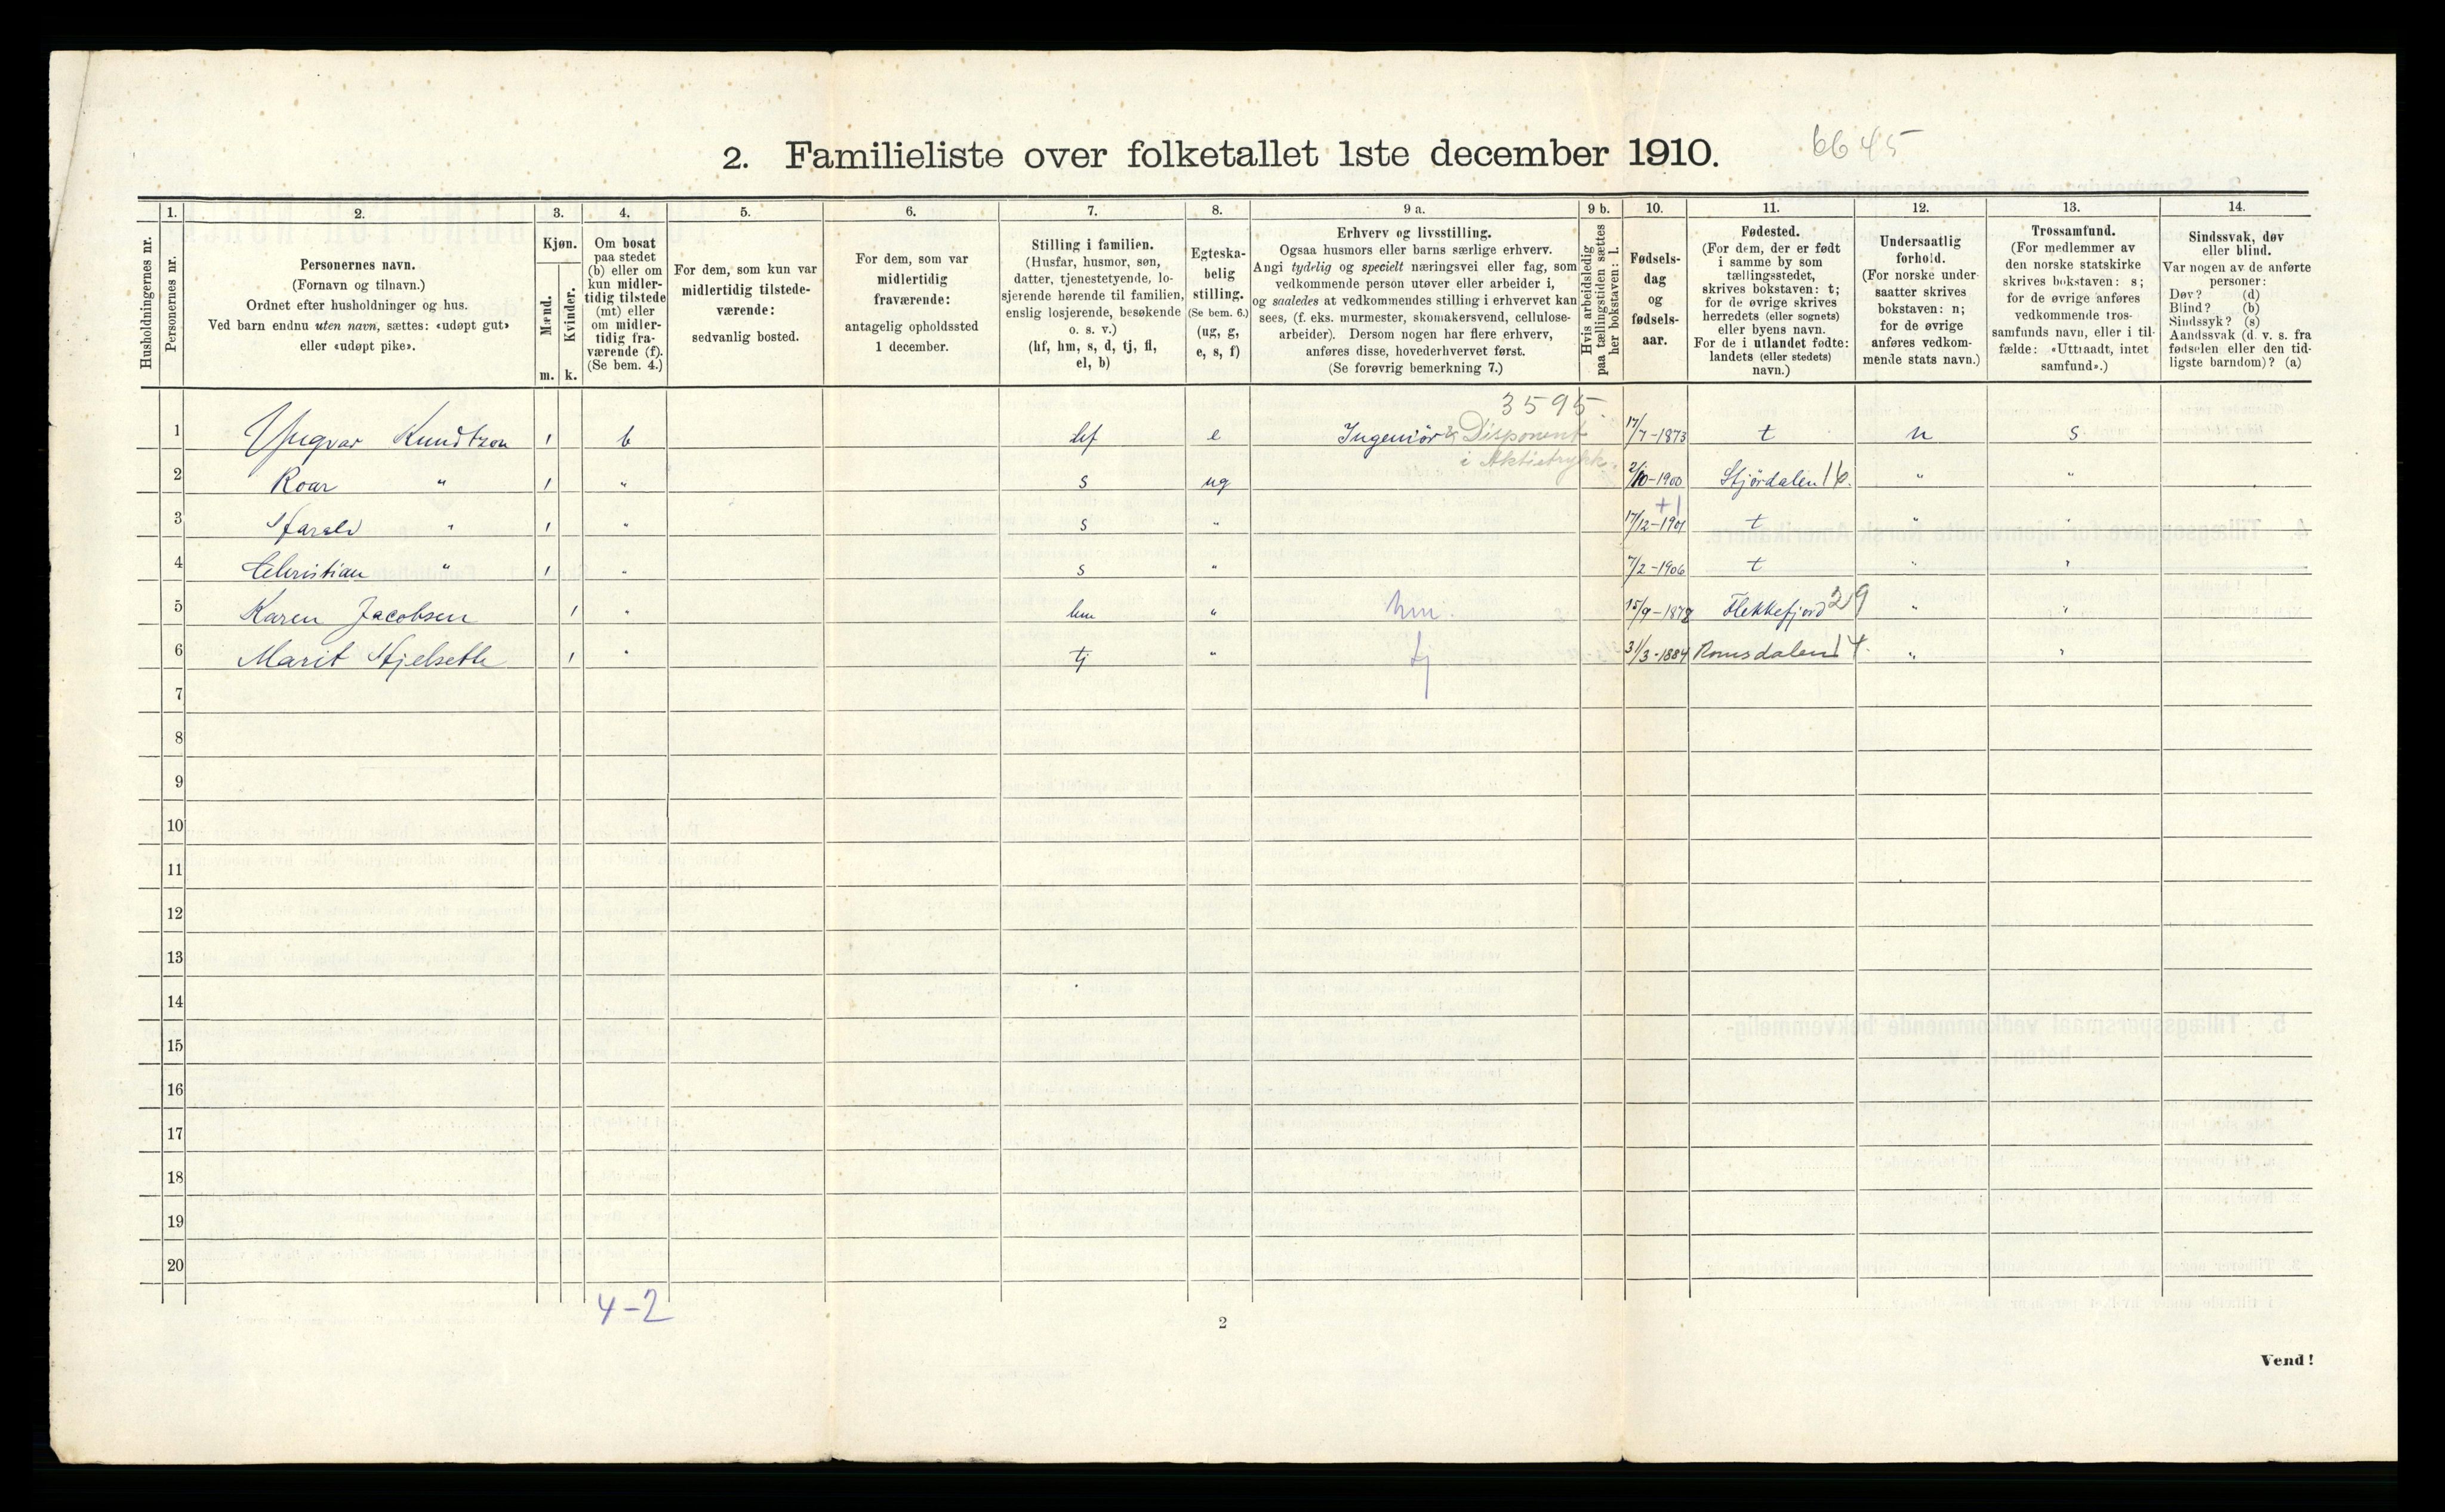 2. Familieliste over folketallet 1ste december 1910.
6645
1. 2. 3. 4. 5. 6. 7. 8. 9 a. 9 b. 10. 11. 12. 13. 14.
Husholdningernes nr.
Personernes nr.
Personernes navn.
(Fornavn og tilnavn.)
Ordnet efter husholdninger og hus.
Ved barn endnu uten navn, sættes: «udøpt gut»
eller «udøpt pike».
Kjøn.
Mænd.
Kvinder.
m. k.
Om bosat
paa stedet
(b) eller om
kun midler-
tidig tilstede
(mt) eller
om midler-
tidig fra-
værende (f).
(Se bem. 4.)
For dem, som kun var
midlertidig tilstede-
værende:
sedvanlig bosted.
For dem, som var
midlertidig
fraværende:
antagelig opholdssted
1 december.
Stilling i familien.
(Husfar, husmor, søn,
datter, tjenestetyende, lo-
sjerende hørende til familien,
enslig losjerende, besøkende
o. s. v.)
(hf, hm, s, d, tj, fl,
el, b)
Egteska-
belig
stilling.
(Se bem. 6.)
(ug, g,
e, s, f)
Erhverv og livsstilling.
Ogsaa husmors eller barns særlige erhverv.
Angi tydelig og specielt næringsvei eller fag, som
vedkommende person utøver eller arbeider i,
og saaledes at vedkommendes stilling i erhvervet kan
sees, (f. eks. murmester, skomakersvend, cellulose-
arbeider). Dersom nogen har flere erhverv,
anføres disse, hovederhvervet først.
(Se forøvrig bemerkning 7.)
Hvis arbeidsledig
paa tællingstiden sættes
her bokstaven: l.
Fødsels-
dag
og
fødsels-
aar.
Fødested.
(For dem, der er født
i samme by som
tællingsstedet,
skrives bokstaven: t;
for de øvrige skrives
herredets (eller sognets)
eller byens navn.
For de i utlandet fødte:
landets (eller stedets)
navn.)
Undersaatlig
forhold.
(For norske under-
saatter skrives
bokstaven: n;
for de øvrige
anføres vedkom-
mende stats navn.)
Trossamfund.
(For medlemmer av
den norske statskirke
skrives bokstaven: s;
for de øvrige anføres
vedkommende tros-
samfunds navn, eller i til-
fælde: «Uttraadt, intet
samfund».)
Sindssvak, døv
eller blind.
Var nogen av de anførte
personer:
Døv? (d)
Blind? (b)
Sindssyk? (s)
Aandssvak (d. v. s. fra
fødselen eller den tid-
ligste barndom)? (a)
3595.
1 Yngvar Kundtzon 1 b hf e Ingeniör & Disponent 17/7-1873 t n s
i Aktietrykk.
2 Roar " 1 " s ug 2/10-1900 Stjørdalen 16. " "
+1
3 Harald " 1 " s " 17/12-1901 t " "
4 Christian " 1 " s " 7/2-1906 t " "
5 Karen Jacobsen 1 " hm " hm. 15/9-1872 Flekkefjord 29 " "
6 Marit Hjelseth 1 " tj " tj 31/3-1884 Romsdalen 14. " "
7
8
9
10
11
12
13
14
15
16
17
18
19
20
4-2
2
Vend!